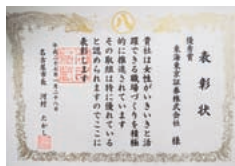 表彰状
優秀賞
東海東京証券株式会社 様
貴社は女性がいきいきと活
躍できる職場づくりを積極
的に推進されています
その取組は特に優れている
と認められますのでここに
表彰します
平成二十七年一月二十八日
名古屋市長 河村 たかし